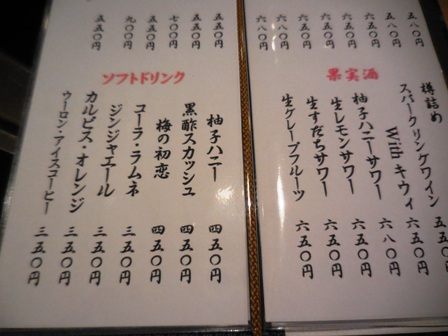 五八〇円
五八〇円
六八〇円
六八〇円
六八〇円
六八〇円
六八〇円
果実酒
樽詰め
スパークリングワイン 五五〇円
With キウイ 六五〇円
柚子ハニーサワー 六八〇円
生レモンサワー 六五〇円
生すだちサワー 六五〇円
生グレープフルーツ 六五〇円
五五〇円
五五〇円
七〇〇円
五五〇円
九〇〇円
五五〇円
ソフトドリンク
柚子ハニー 四五〇円
黒酢スカッシュ 四五〇円
梅の初恋 四五〇円
コーラ・ラムネ 三五〇円
ジンジャエール 三五〇円
カルピス・オレンジ 三五〇円
ウーロン・アイスコーヒー 三五〇円